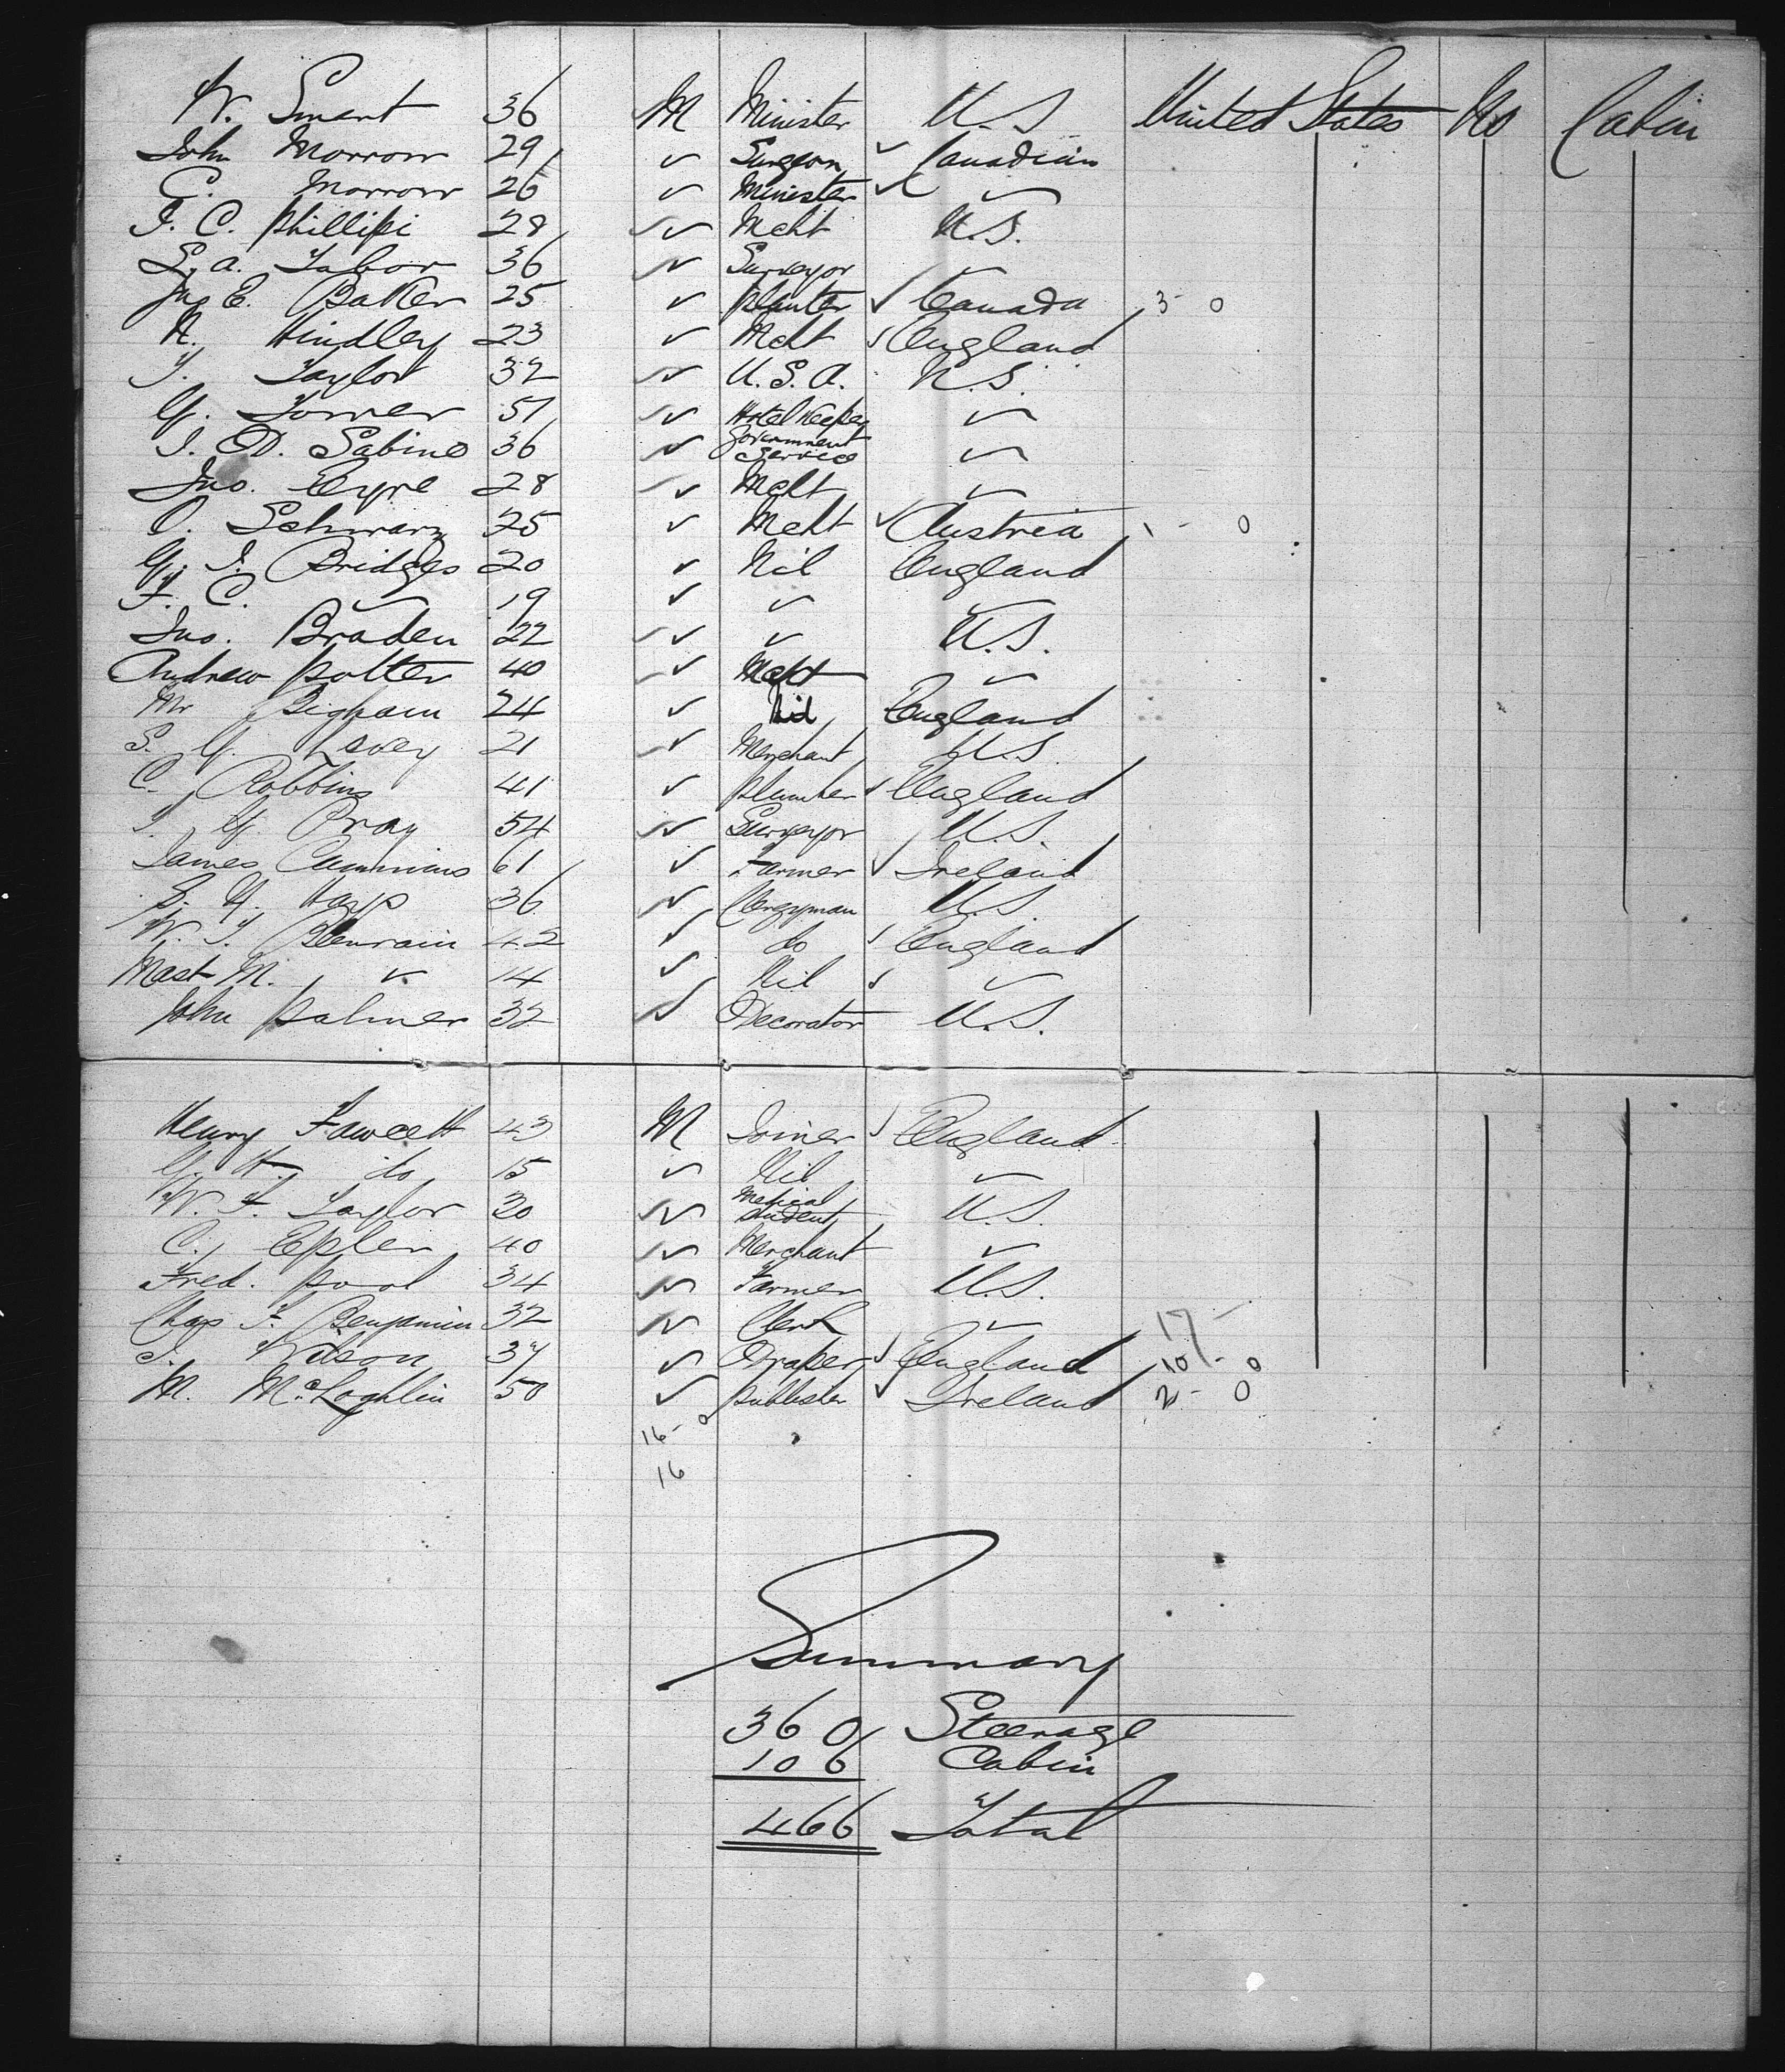 W. Smart 36 M Minister U.S. United States No Cabin
John Morrow 29 ✓ Surgeon ✓ Canadian
C. Morrow 26 ✓ Minister ✓ ✓
J. C. Phillipi 28 ✓ Mcht U.S.
S. A. Tabor 36 ✓ Surveyor ✓
Jno E. Baker 25 ✓ Planter ✓ Canada 3 - 0
N. Hindley 23 ✓ Mcht ✓ England
T. Taylor 32 ✓ U.S.A. U.S.
G. Torrer 51 ✓ Hotel Keeper ✓
J. D. Sabine 36 ✓ Government Service ✓
Jno. Eyre 28 ✓ Mcht ✓
O. Schwarz 25 ✓ Mcht ✓ Austria 1 - 0
G. J. Bridges 20 ✓ Nil England
F. C. ✓ 19 ✓ ✓ ✓
Jno. Braden 22 ✓ ✓ U.S.
Andrew Potter 40 ✓ Mcht ✓
Mr Bigham 24 ✓ Nil England
S. G. Levey 21 ✓ Merchant U.S.
C. Robbins 41 ✓ Plumber ✓ England
J. G. Pray 54 ✓ Surveyor U.S.
James Cummins 61 ✓ Farmer ✓ Ireland
S. H. Hays 36 ✓ Clergyman U.S.
W. T. 42 ✓ do ✓ England
Mast M. ✓ 14 ✓ Nil ✓ ✓
John Palmer 32 ✓ Decorator U.S.
Henry Fawcett 43 M Joiner ✓ England
G. H. do 15 ✓ Nil ✓
W. F. Taylor 20 ✓ Medical Student U.S.
C. Epler 40 ✓ Merchant ✓
Fred. Pool 34 ✓ Farmer U.S.
Chas F. Benjamin 32 ✓ Clerk ✓ 17 -
J. Wilson 34 ✓ Draper ✓ England 10 - 0
M. McLoghlin 50 ✓ Publisher ✓ Ireland 2 - 0
16 - 0
16
Summary
360 Steerage
106 Cabin
466 Total